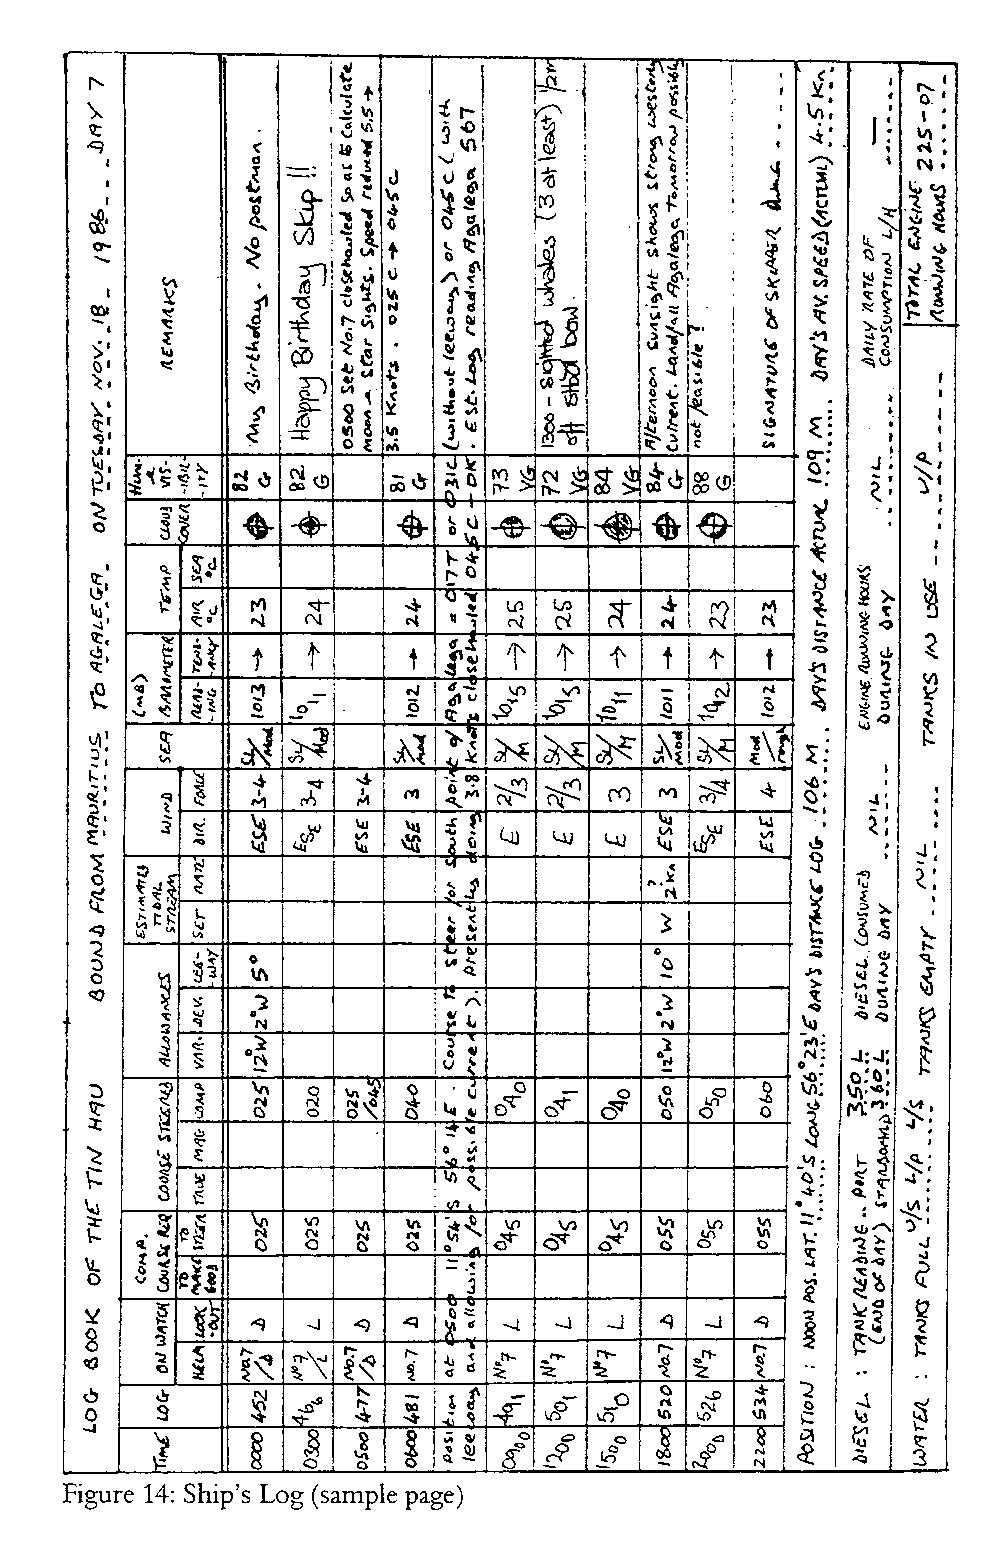 LOG BOOK OF THE TIN HAU BOUND FROM MAURITIUS TO AGALEGA ON TUESDAY NOV. 18 1986 DAY 7
TIME LOG ON WATCH COMP. COURSE REQ COURSE STEERED ALLOWANCES ESTIMATED TIDAL STREAM WIND SEA (MB) BAROMETER TEMP CLOUD COVER HUM- & VIS- -IBIL- -ITY REMARKS
HELM LOOK -OUT TO MAKE GOOD TO STEER TRUE MAG COMP VAR. DEV. LEE- WAY SET RATE DIR. FORCE READ- -ING TEND- -ANCY AIR °C SEA °C
0000 452 No.7 /D D 025 025 12°W 2°W 5° ESE 3-4 SL/Mod 1013 → 23 82 G Mrs Birthday. No postman.
0300 466 No7 /L L 025 020 ESE 3-4 SL/Mod 1011 → 24 82 G Happy Birthday Skip!!
0500 477 No.7 /D D 025 025 /045 ESE 3-4 0500 Set No.7 closehauled so as to calculate
moon - star sights. Speed reduced 5.5 →
0600 481 No.7 D 025 040 ESE 3 SL/Mod 1012 → 24 81 G 3.5 Knots. 025 C → 045 C
position at 0500 11°54'S 56°14'E. Course to steer for South point of Agalega = 017T or 031C (without leeway) or 045 C (with
leeway and allowing for possible current). presently doing 3.8 Knots closehauled 045 C - OK. Est. Log reading Agalega 567
0900 491 No7 L 045 040 E 2/3 SL/M 1015 → 25 73 VG
1200 501 No7 L 045 041 E 2/3 SL/M 1015 → 25 72 VG 1300 - sighted whales (3 at least) 1/2m
off stbd bow
1500 510 No7 L 045 040 E 3 SL/M 1011 → 24 84 VG
1800 520 No.7 D 055 050 12°W 2°W 10° W 2Kn? ESE 3 SL/Mod 1011 → 24 84 G Afternoon sunsight shows strong westerly
current. Landfall Agalega Tomorrow possibly
2000 526 No7 L 055 050 ESE 3/4 SL/M 1012 → 23 88 G not feasible?
2200 534 No.7 D 055 060 ESE 4 Mod/rough 1012 → 23 SIGNATURE OF SKIPPER
POSITION : NOON POS. LAT. 11°40'S LONG 56°23'E DAY'S DISTANCE LOG 106 M DAY'S DISTANCE ACTUAL 109 M DAY'S AV. SPEED (ACTUAL) 4.5 Kn
DIESEL : TANK READING PORT 350 L DIESEL CONSUMED DURING DAY NIL ENGINE RUNNING HOURS DURING DAY NIL DAILY RATE OF CONSUMPTION L/H —
(END OF DAY) STARBOARD 360 L
WATER : TANKS FULL U/S L/P L/S TANKS EMPTY NIL TANKS IN USE U/P TOTAL ENGINE RUNNING HOURS 225-07
Figure 14: Ship's Log (sample page)